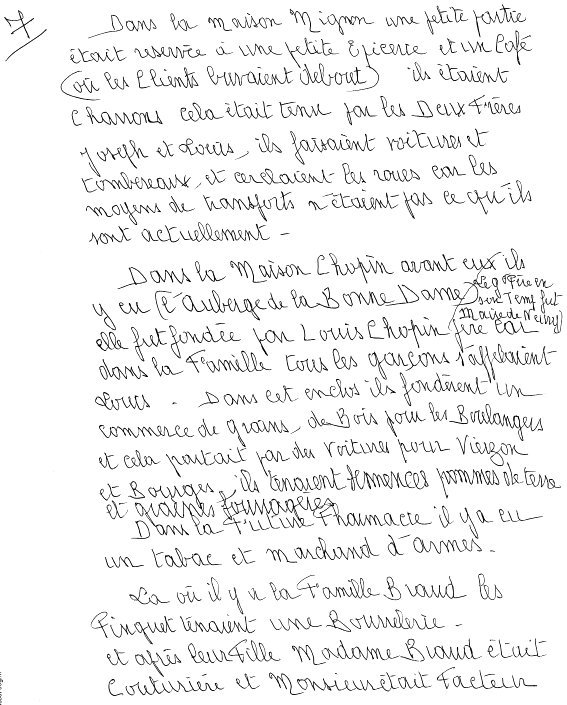 7
Dans la maison Mignon une petite partie
était reservée à une petite Epicerie et un Café
(où les Clients buvaient debout) ils étaient
Charrons cela était tenu par les Deux Frères
Joseph et Louis, ils faisaient voitures et
tombereaux, et cerclaient les roues car les
moyens de transports n'étaient pas ce qu'ils
sont actuellement -
Dans la Maison Chopin avant eux ils
y eu (l'Auberge de la Bonne Dame)
Le g Père en
son Temp fut
Maire de
elle fut fondée par Louis Chopin père car
dans la Famille tous les garçons s'appelaient
Louis . Dans cet enclos ils fondèrent un
commerce de grains, de Bois pour les Boulangers
et cela partait par des voitures pour Vierzon
et Bourges, ils tenaient semences pommes de terre
et graines fourragères
Dans la Future Pharmacie il y a eu
un tabac et marchand d'armes.
La où il y a la Famille Braud les
Pinquet tenaient une Bourrelerie -
et après leur Fille Madame Braud était
Couturière et Monsieur était Facteur